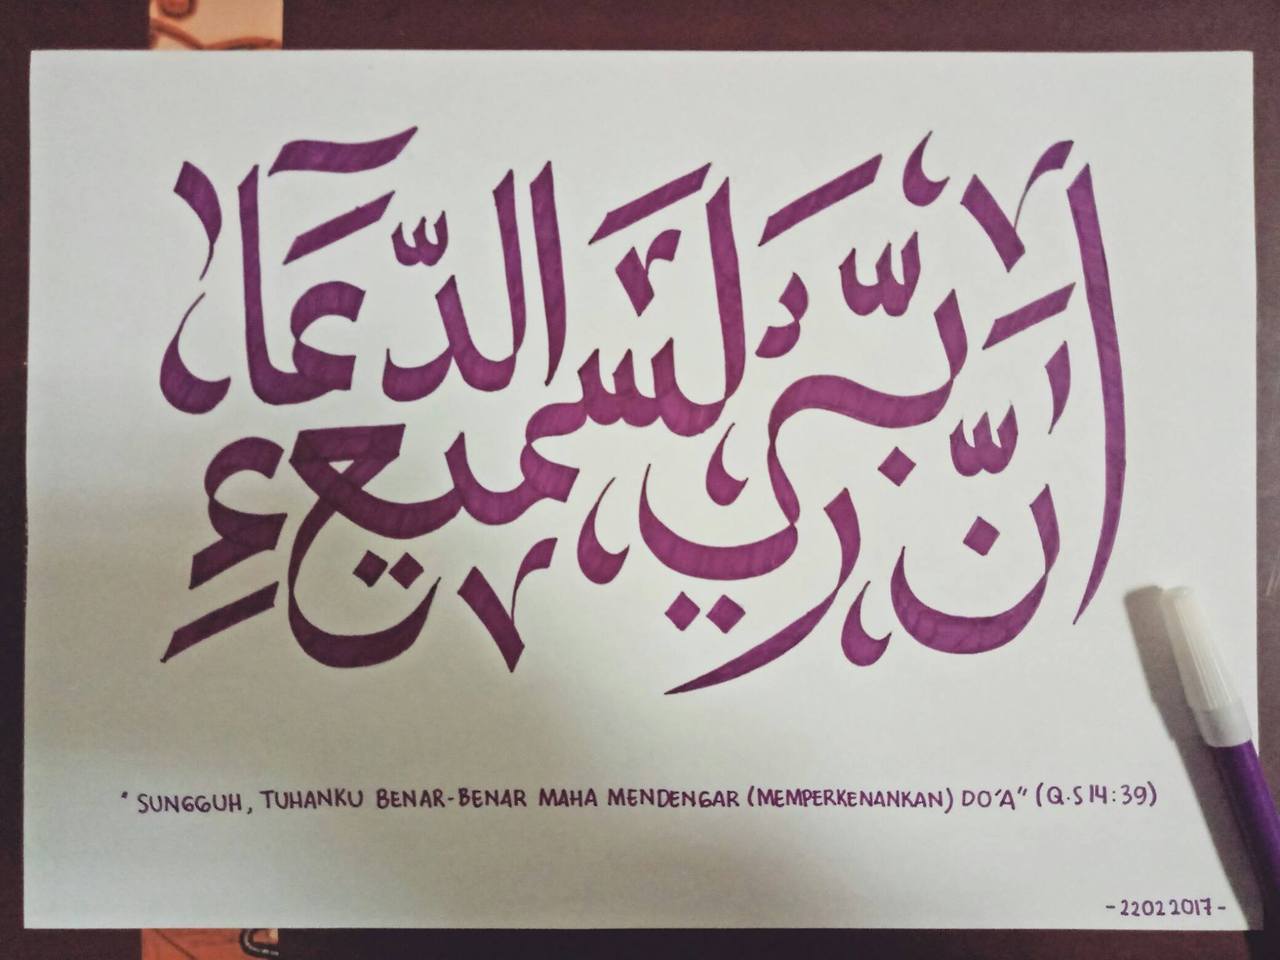 إِنَّ رَبِّي لَسَمِيعُ الدُّعَاءِ
" SUNGGUH, TUHANKU BENAR-BENAR MAHA MENDENGAR (MEMPERKENANKAN) DO'A" (Q.S 14:39)
-22022017-